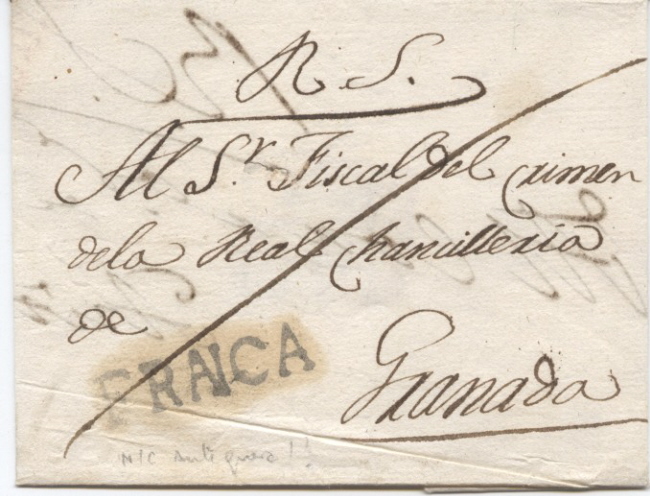 R. S.
Al S.r Fiscal del Crimen
dela Real Chancilleria
de
FRANCA
Granada
N/C Antequera!!